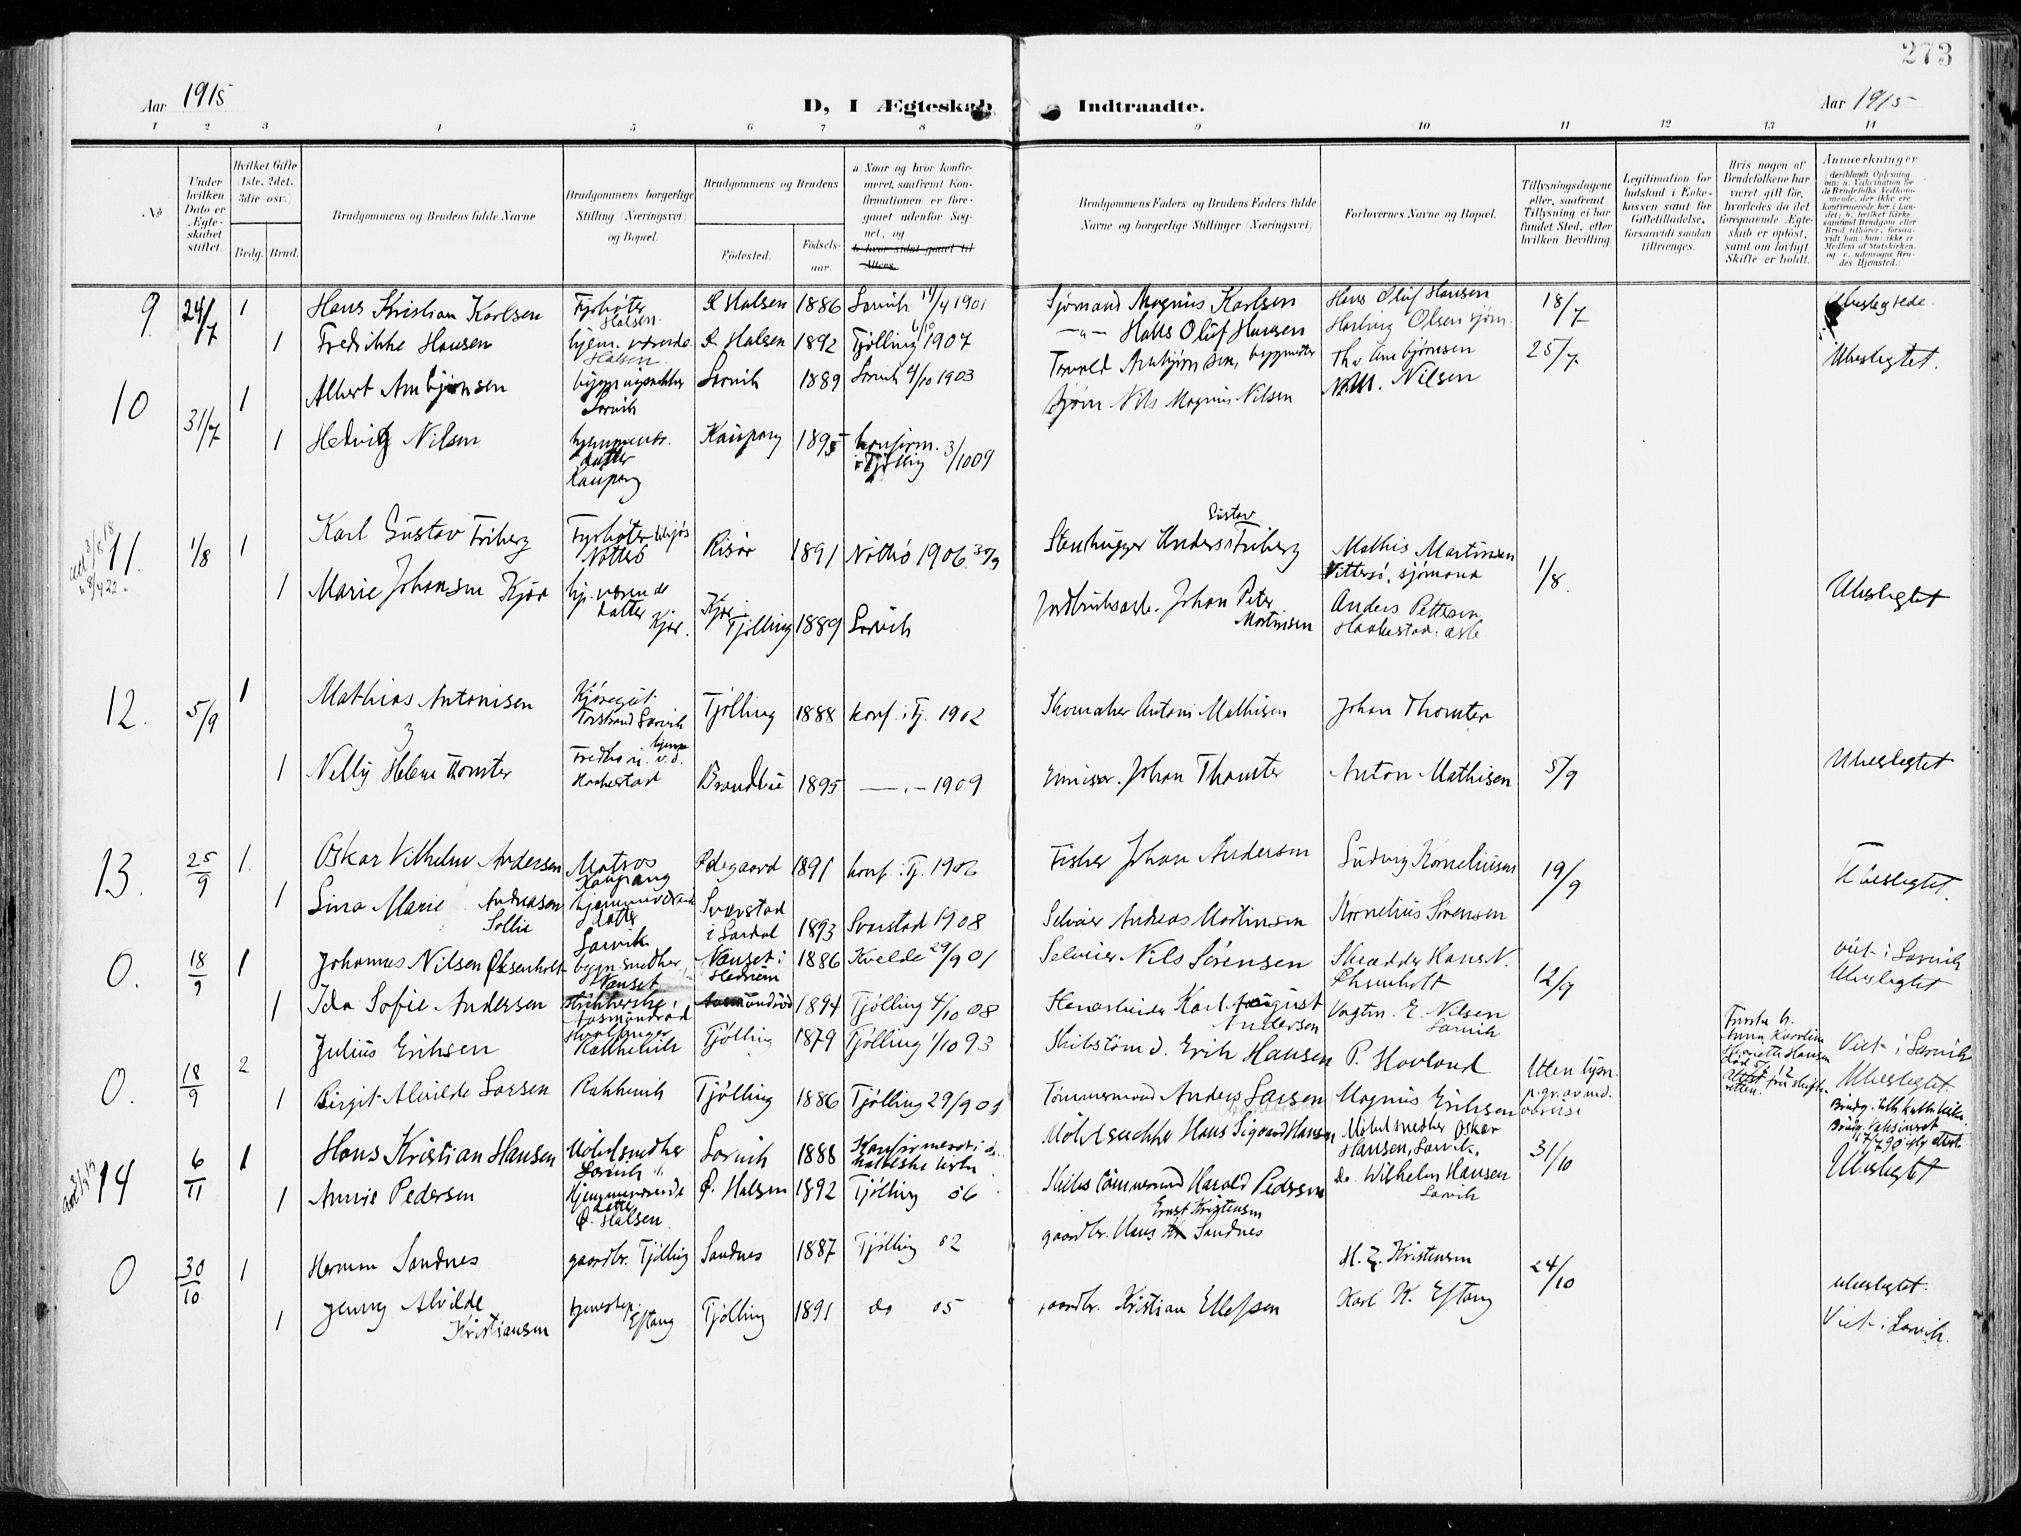 273
Aar 1915
D, I Ægteskab Indtraadte.
Aar 1915
1 2 3 4 5 6 7 8 9 10 11 12 13 14
No
Under hvilken Dato er Ægteskabet stiftet.
Hvilket Gifte 1ste, 2det, 3die osv.)
Brdg. Brud.
Brudgommens og Brudens fulde Navne
Brudgommens borgerlige Stilling (Næringsvei) og Bopæl.
Brudgommens og Brudens
Fødested.
Fødselsaar.
a) Naar og hvor konfirmeret, saafremt Konfirmationen er foregaaet udenfor Sognet, og
b) hvor sidst gaaet til Alters.
Brudgommens Faders og Brudens Faders fulde Navne og borgerlige Stillinger (Næringsvei)
Forlovernes Navne og Bopæl.
Tillysningsdagene eller, saafremt Tillysning ei har fundet Sted, efter hvilken Bevilling.
Legitimation for Indskud i Enkekassen samt for Giftetilladelse, forsaavidt saadan tiltrænges.
Hvis nogen af Brudefolkene har været gift før, hvorledes da det foregaaende Ægteskab er opløst, samt om lovligt Skifte er holdt.
Anmerkninger
9 24/7 1 Hans Kristian Karlsen Fyrbøter Halsen Ø Halsen 1886 Larvik 14/4 1901 Sjømand Magnus Karlsen Hans Oluf Hansen 18/7 Ubeslegtede
1 Fredrikke Hansen hjem. værende Halsen Ø Halsen 1892 Tjølling 6/10 1907 -"- Hans Oluf Hansen Olsen sjøm.
10 31/7 1 Albert Ambjørnsen Larvik Larvik 1889 Larvik 4/10 1903 Torvald Ambjørnsen, bygmester Th. Ambjørnsen 25/7 Ubeslegtet.
1 Hedvig Nilsen hjemmevær. datter Kaupang Kaupang 1895 konfirm. i Tjølling 3/10 09 Sjøm Nils Magnus Nilsen N.M. Nilsen
11. 1/8 1 Karl Gustav Friberg Fyrbøter Nøtterø Risør 1891 Nøtterø 1906 30/9 Stenhugger Anders Gustav Friberg Mathis Martinsen sjømand 1/8. Ubeslegtet
1 Marie Johansen Kjær hj. værende datter Kjær. Kjær i Tjølling 1889 Larvik Johan Peter Martinsen Anders Pettersen
12. 5/9 1 Mathias Antonisen Kjøregut Torstrand Larvik Tjølling 1888 konf. i Tj. 1902 Skomaker Antoni Mathisen Johan Thomter
1 Nelly Helene Thomter Brandbu 1895 —"— 1909 Emissær. Johan Thomter Anton Mathisen 5/9 Ubeslegtet
13. 25/9 1. Oskar Vilhelm Andersen Matros Kaupang Ødegaard 1891 konf. i Tj. 1906 Fisker Johan Andersen Ludvig Korneliusen 19/9 Ubeslegtet.
1 Lina Marie Andreasen Sollie hjemmeværende datter Larvik Svarstad i Lardal 1893 Svarstad 1908 Selveier Andreas Martinsen Kornelius Sørensen
0. 18/9 1 Johannes Nilsen Øksenholt bygn.snedker Nanset Nanset i Hedrum 1886 Kvelde 29/9 01 Selveier Nils Sørensen Skrædder Hans N. Øksenholt 12/9 viet i Larvik Ubeslegtet
1 Ida Sofie Andersen Aasmundrød 1894 Tjølling 4/10 08 Stenarbeider Karl August Andersen Vogtm. E. Nilsen Larvik
0. 18/9 2 Julius Eriksen Hvalfanger Rækkevik Tjølling 1879 Tjølling 1/10 93 Skibstømd. Erik Hansen P. Hovland Uten lysn. Viet i Larvik Ubeslegtet
1 Birgit Alvilde Larsen Rækkevik Tjølling 1886 Tjølling 29/9 01 Tømmermand Anders Larsen Magnus Eriksen
14 6/11 1 Hans Kristian Hansen Møbelsnedker Larvik Larvik 1888 Konfirmeret i d. katholske kirke Møbelsnedker Hans Sigvard Hansen Møbelsnedker Oskar Hansen, Larvik, 31/10 Ubeslegtet
1 Annie Pedersen Hjemmeværende datter Ø. Halsen Ø. Halsen 1892 Tjølling 06 Skibstømmermand Harald Pedersen Do Wilhelm Hansen Larvik
0 30/10 1 Herman Sandnes gaardbr. Tjølling Sandnes 1887 Tjølling 02 gaardbr. Hans Ernst Kristensen Sandnes H. E. Kristensen 24/10 ubeslegtet.
1 Jenny Alvilde Kristiansen Eftang Tjølling 1891 do 05 gaardbr. Kristian Ellefsen Karl K. Eftang Viet i Larvik.